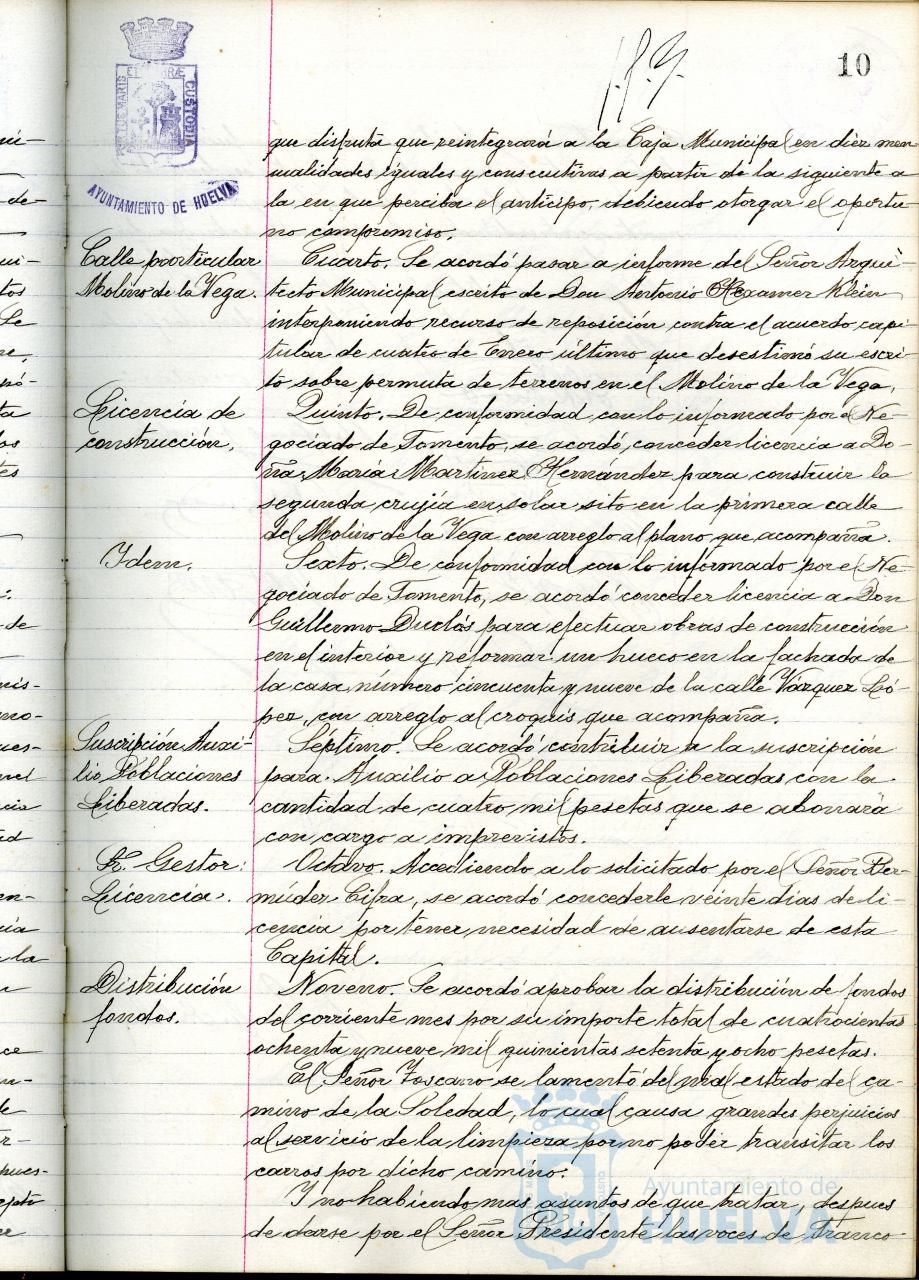 10
PORTUS MARIS ET TERRÆ CUSTODIA
AYUNTAMIENTO DE HUELVA
que disfruta que reintegrará a la Caja Municipal en diez men
sualidades iguales y consecutivas a partir de la siguiente a
la en que perciba el anticipo, debiendo otorgar el oportu
no compromiso.
Calle particular
Molino de la Vega.
Cuarto. Se acordó pasar a informe del Señor Arqui-
tecto Municipal escrito de Don Antonio Hexamer Klein
interponiendo recurso de reposición contra el acuerdo capi-
tular de cuatro de Enero último que desestimó su escri-
to sobre permuta de terrenos en el Molino de la Vega.
Licencia de
construcción.
Quinto. De conformidad con lo informado por el Ne-
gociado de Fomento, se acordó conceder licencia a Do-
ña María Martínez Hernández para construir la
segunda crujía en solar sito en la primera calle
del Molino de la Vega con arreglo al plano que acompaña.
Ydem.
Sexto. De conformidad con lo informado por el Ne-
gociado de Fomento, se acordó conceder licencia a Don
Guillermo Duclós para efectuar obras de construcción
en el interior y reformar un hueco en la fachada de
la casa número cincuenta y nueve de la calle Vázquez Ló-
pez, con arreglo al croquis que acompaña.
Suscripción Auxi-
lio Poblaciones
Liberadas.
Séptimo. Se acordó contribuir a la suscripción
para Auxilio a Poblaciones Liberadas con la
cantidad de cuatro mil pesetas que se abonará
con cargo a imprevistos.
Sr. Gestor:
Licencia.
Octavo. Accediendo a lo solicitado por el Señor Ber-
múdez Cifra, se acordó concederle veinte días de li-
cencia por tener necesidad de ausentarse de esta
Capital.
Distribución
fondos.
Noveno. Se acordó aprobar la distribución de fondos
del corriente mes por su importe total de cuatrocientas
ochenta y nueve mil quinientas setenta y ocho pesetas.
El Señor Toscano se lamentó del mal estado del ca-
mino de la Soledad, lo cual causa grandes perjuicios
al servicio de la limpieza por no poder transitar los
carros por dicho camino.
Y no habiendo mas asuntos de que tratar, despues
de darse por el Señor Presidente las voces de Franco-
Ayuntamiento de
HUELVA